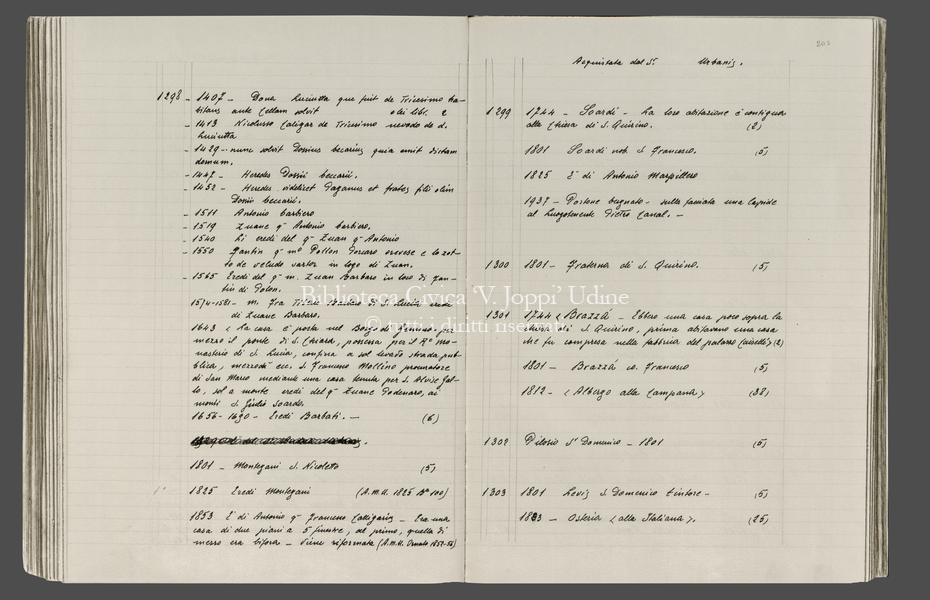 1298 - 1407 - Dona Luciutta que fuit de Tricesimo ha-
bitans ante Cellam solvit olei libr. 2
- 1413 Nicolusso Caligar de Tricesimo nevodo de d.
Luciutta
- 1429 - nunc solvit Dossius becarius quia emit dictam
domum.
- 1447 - Heredes Dossii beccarii.
- 1452 - Heredes videlicet Paganus et frates filii olim
Dossii beccarii.
- 1511 Antonio barbiero
- 1519 Zuane q.m Antonio barbiero.
- 1540 Li eredi del q.m Zuan q.m Antonio
- 1550 q.m
to de veludo sartor in logo di Zuan.
- 1565 Eredi del q.m m. Zuan Barbaro in loco di Fan-
tin di Polon.
1574-1581 - m. Fra Barbiero di S. Lucia eredi
di Zuane Barbaro.
1643 < La casa è posta nel Borgo per
mezzo il ponte di S. Chiara, possessa per il R.o Mo-
nasterio di S. Lucia, confina a sol levado strada pub-
blica, mezzodì ecc. S. Francesco Mollino procuratore
di San Marco mediante una casa tenuta per S. Alvise Gal-
lo, sol a monte eredi del q.m Zuane Podenaro, ai
monti S. Giulio Soardo.
1656-1690 - Eredi Barbati. - (6)
1801 - Montegnani S. Nicoletto (5)
1825 Eredi Montegnani (A.M.U. 1825 N° 100)
1853 È di Antonio q.m Francesco Calligaris - Era una
casa di due piani a 5 finestre, al primo, quella di
mezzo era bifora - Viene riformata (A.M.U. Ornato 1851-53)
203
Acquistata dal S.r Urbanis.
1299 1744 - Soardi - La loro abitazione è contigua
alla Chiesa di S. Quirino. (2)
1801 Soardi nob. S. Francesco. (5)
1825 È di Antonio Marpillero
1937 - Portone bugnato - sulla facciata una lapide
al luogotenente Pietro Canal. -
1300 1801 - Fraterna di S. Quirino. (5)
1301 1744 < Brazzà - Ebbero una casa poco sopra la
chiesa di S. Quirino, prima abitavano una casa
che fu compresa nella fabbrica del palazzo (2)
1801 - Brazzà co. Francesco (5)
1812 - < Albergo alla Campana > (38)
1302 Pilosio S.r Domenico - 1801 (5)
1303 1801 Levis S. Domenico tintore - (5)
1883 - Osteria < alla Italiana >. (25)
Biblioteca Civica 'V. Joppi' Udine
© tutti i diritti riservati